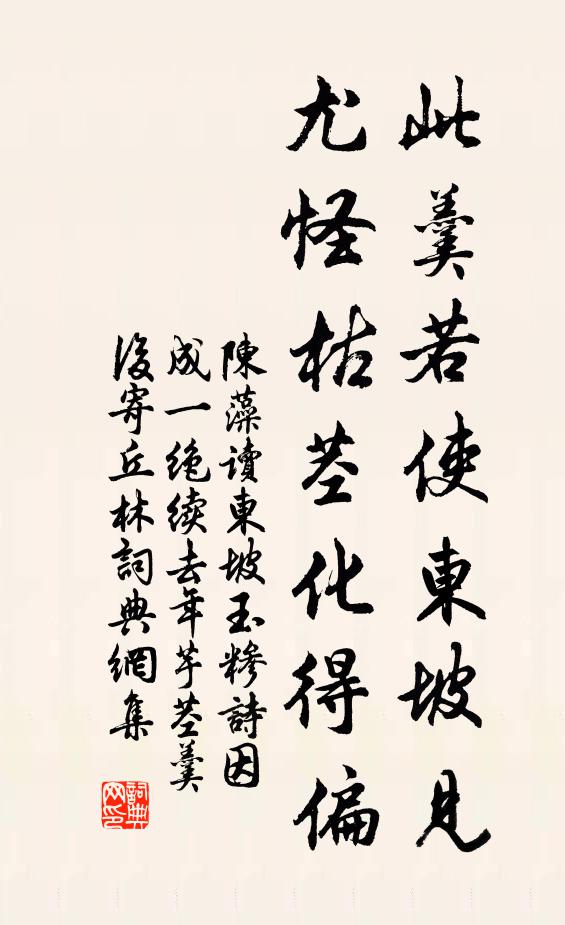 此羹若使東坡見
尤怪枯茎化得偏
陳藻讀東坡玉糝詩因
成一绝续去年芋茎羹
後寄丘林詞典網集
詞典
网印